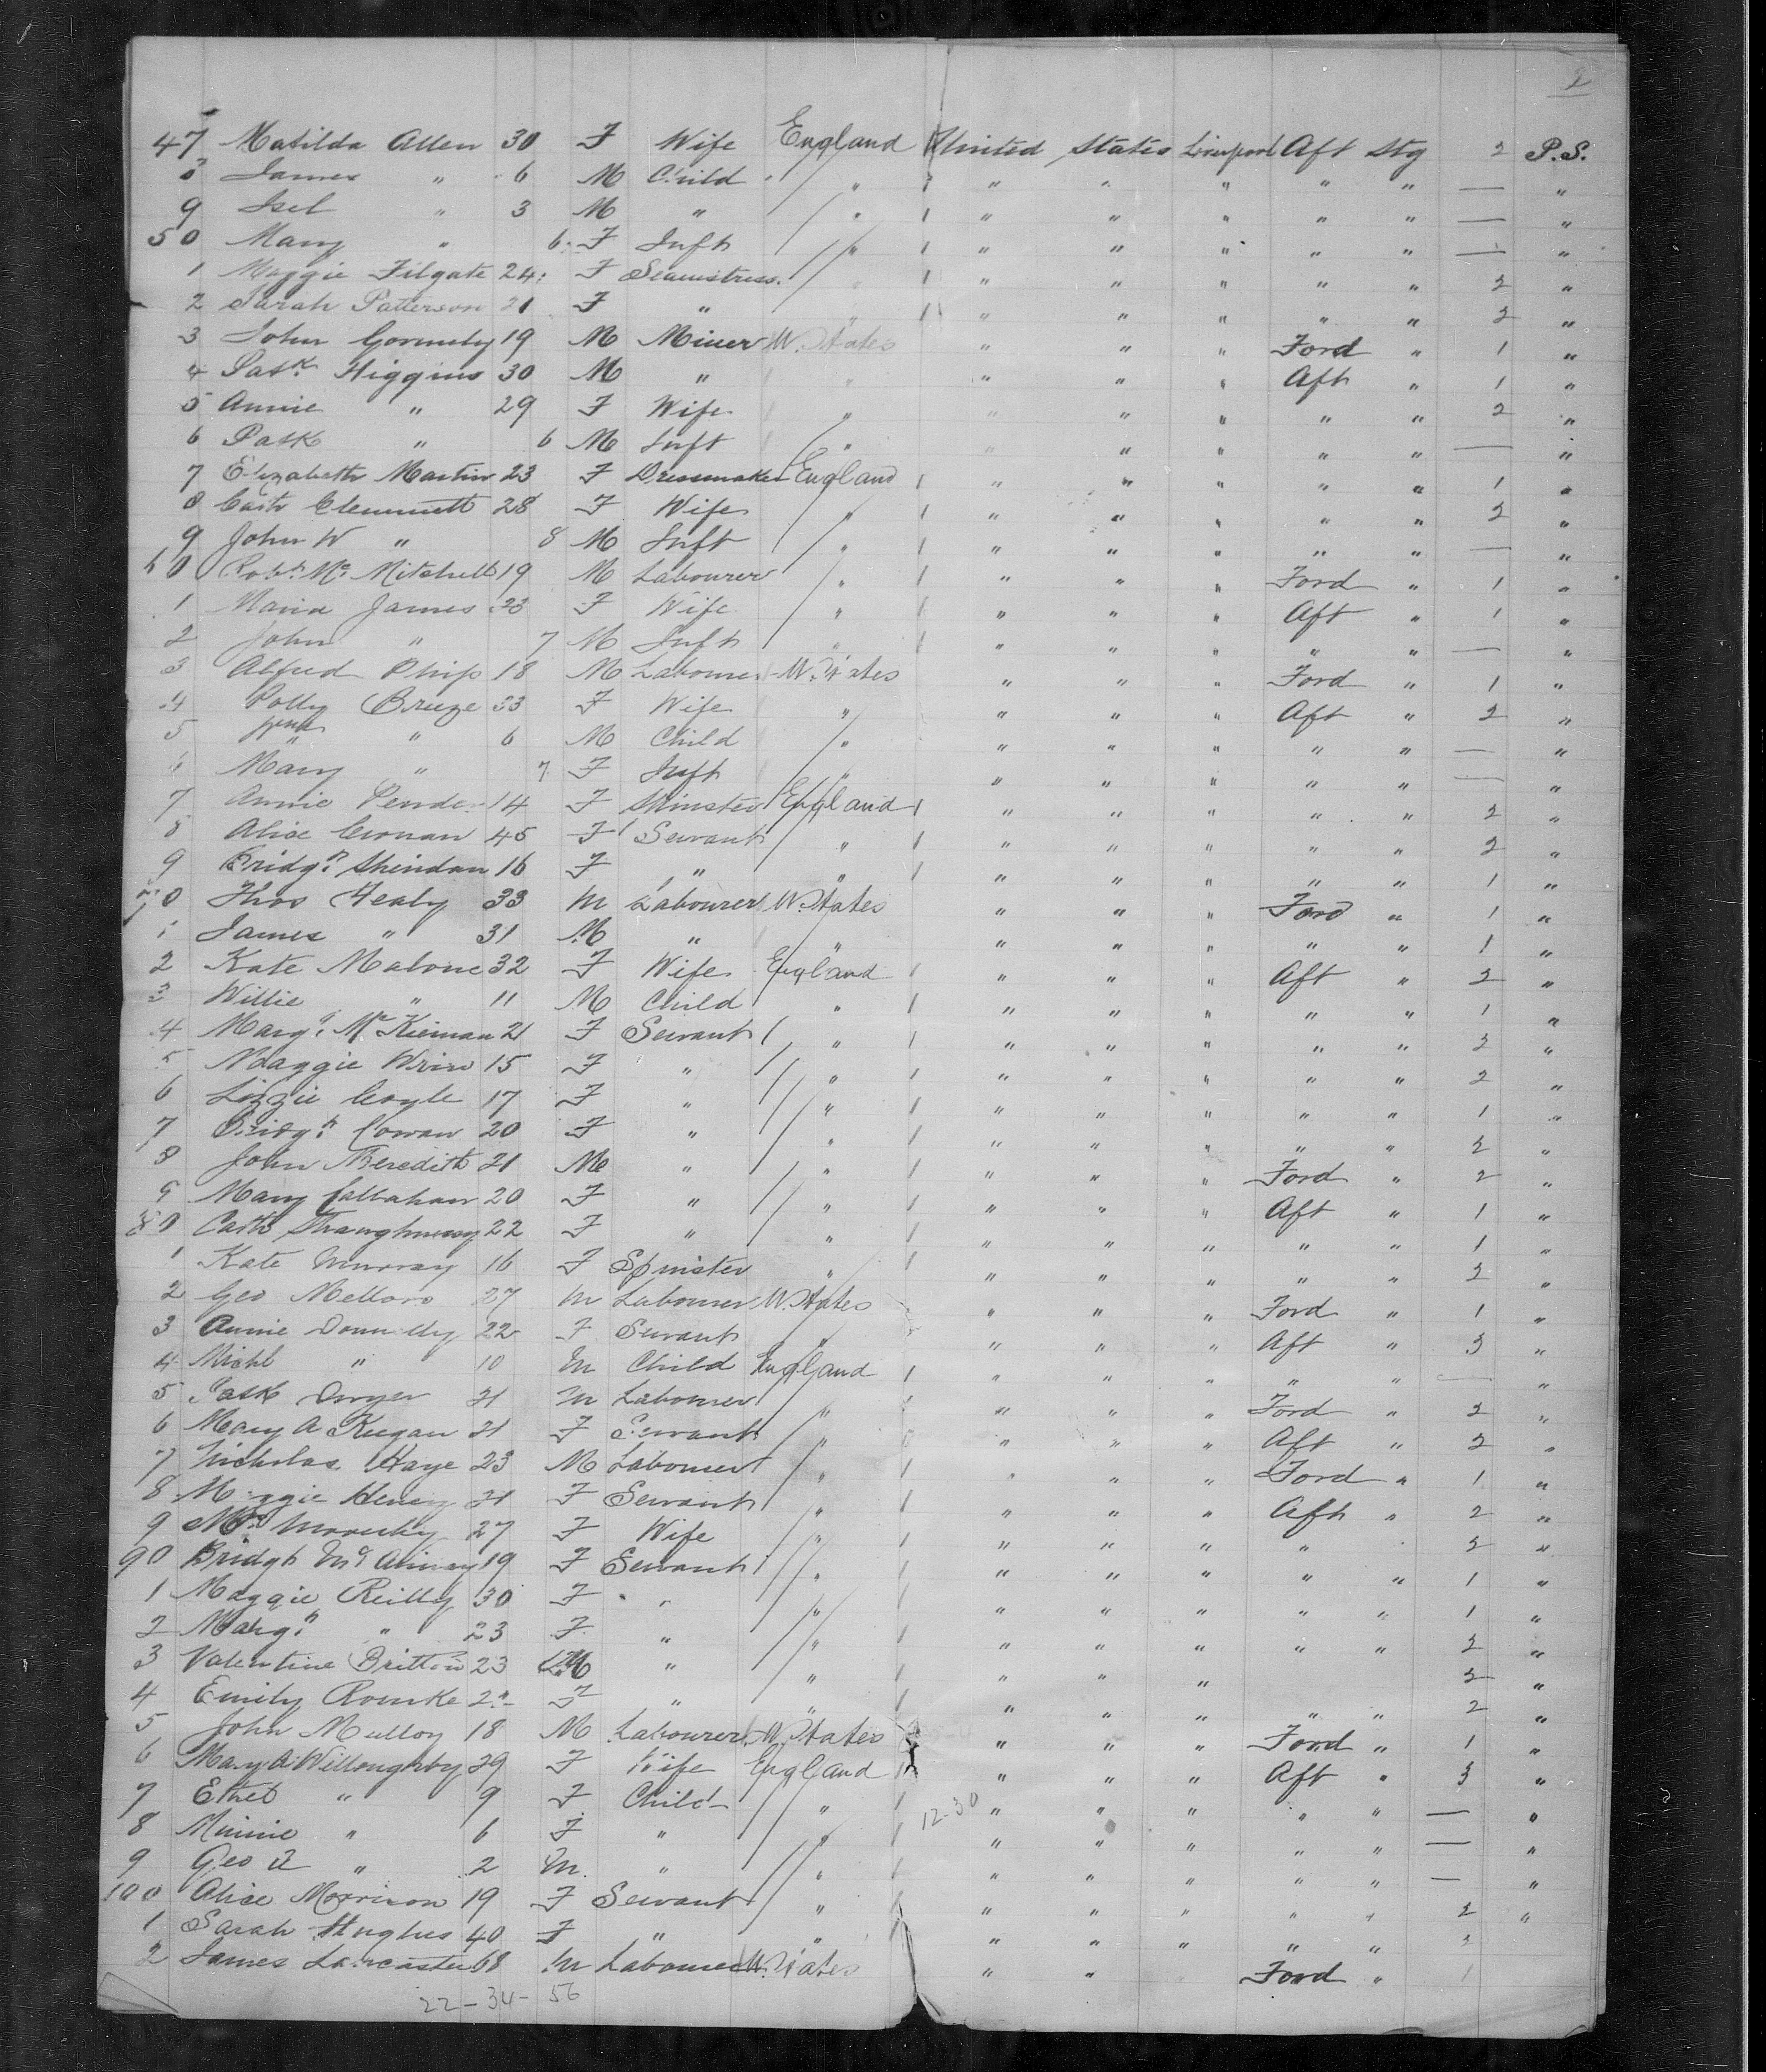 2
47 Matilda Allen 30 F Wife England United States Liverpool Aft Stg 2 P.S.
8 James " 6 M Child " " " " " " — "
9 Isel " 3 M " " " " " " " — "
50 Mary " 6 F Inft " " " " " " — "
1 Maggie Filgate 24 F Seamstress " " " " " " 2 "
2 Sarah Patterson 21 F " " " " " " " 2 "
3 John Gormely 19 M Miner U. States " " " Ford " 1 "
4 Patk Higgins 30 M " " " " " Aft " 1 "
5 Annie " 29 F Wife " " " " " " 2 "
6 Patk " 6 M Inft " " " " " " — "
7 Elizabeth Martin 23 F Dressmaker England " " " " " 1 "
8 Cath Clemmett 28 F Wife " " " " " " 2 "
9 John W " 8 M Inft " " " " " " — "
60 Robt Mc Mitchell 19 M Labourer " " " " Ford " 1 "
1 Maria James 23 F Wife " " " " Aft " 1 "
2 John " 7 M Inft " " " " " " — "
3 Alfred Phip 18 M Labourer U. States " " " Ford " 1 "
4 Polly Breeze 33 F Wife " " " " Aft " 2 "
5 " 6 M Child " " " " " " — "
6 Mary " 7 F Inft " " " " " " — "
7 Annie Pender 14 F Spinster England " " " " " 2 "
8 Alice Cronan 45 F Servant " " " " " " 2 "
9 Bridgt Sheridan 16 F " " " " " " " 1 "
70 Thos Healy 33 M Labourer U. States " " " Ford " 1 "
1 James " 31 M " " " " " " " 1 "
2 Kate Malone 32 F Wife England " " " Aft " 2 "
3 Willie " 11 M Child " " " " " " 1 "
4 Margt McKiernan 21 F Servant " " " " " " 2 "
5 Maggie Wrin 15 F " " " " " " " 2 "
6 Lizzie Coyle 17 F " " " " " " " 1 "
7 Bridgt Cowan 20 F " " " " " " " 2 "
8 John Meredith 21 M " " " " " Ford " 2 "
9 Mary Callahan 20 F " " " " " Aft " 1 "
80 Cath Shaughnessy 22 F " " " " " " " 1 "
1 Kate Murray 16 F Spinster " " " " " " 2 "
2 Geo Mellors 27 M Labourer U. States " " " Ford " 1 "
3 Annie Donnelly 22 F Servant " " " " Aft " 3 "
4 Michl " 10 M Child England " " " " " — "
5 Patk Dwyer 21 M Labourer " " " " Ford " 2 "
6 Mary A Keegan 21 F Servant " " " " Aft " 2 "
7 Nicholas Kaye 23 M Labourer " " " " Ford " 1 "
8 Maggie Henry 21 F Servant " " " " Aft " 2 "
9 Mrs 27 F Wife " " " " " 2 "
90 Bridgt 19 F Servant " " " " " " 1 "
1 Maggie Reilly 30 F " " " " " " " 1 "
2 Margt " 23 F " " " " " " " 2 "
3 Valentine Britton 23 M " " " " " 2 "
4 Emily Rourke F " " " " " " " 2 "
5 John Mulloy 18 M Labourer U. States " " " Ford " 1 "
6 Mary A Willoughby 29 F Wife England " " " Aft " 3 "
7 Ethel " 9 F Child " 12-30 " " " " " — "
8 Minnie " 6 F " " " " " " " — "
9 Geo " 2 M " " " " " " " — "
100 Alice Morrison 19 F Servant " " " " " " 2 "
1 Sarah Hughes 40 F " " " " " " " 2
2 James Lancaster 68 M Labourer U. States " " Ford " 1
22-34-56